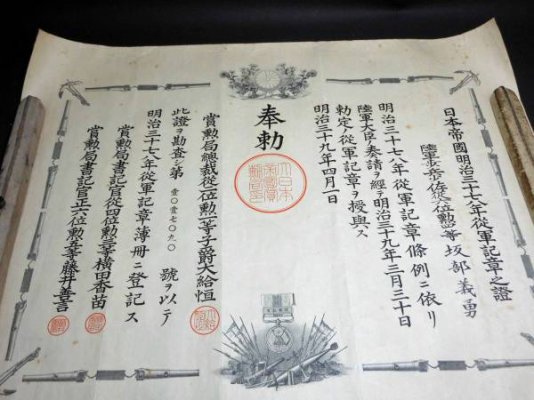 日本帝國明治三十七八年從軍記章之證
陸軍 坂部義勇
明治三十七八年從軍記章條例ニ依リ
陸軍大臣ノ奏請ヲ經テ明治三十九年三月三十日
勅定ノ從軍記章ヲ授與ス
明治三十九年四月一日
奉勅
大日本帝國賞勲局印
賞勲局總裁從二位勲一等子爵大給恒
此證ヲ勘査シ第壹〇壹七〇九〇號ヲ以テ
明治三十七八年從軍記章簿冊ニ登記ス
賞勲局書記官從四位勲三等横田香苗
賞勲局書記官正六位勲五等藤井善言